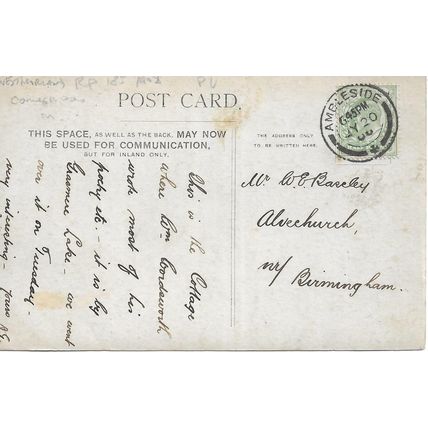 POST CARD.
THIS SPACE, AS WELL AS THE BACK, MAY NOW
BE USED FOR COMMUNICATION,
BUT FOR INLAND ONLY.
THE ADDRESS ONLY
TO BE WRITTEN HERE.
AMBLESIDE
6.45PM
20
This is the Cottage
where Wm Wordsworth
wrote most of his
poetry etc. - it is by
Grasmere Lake - we went
over it on Tuesday -
very interesting - yours
Mr W E Bareley
Alvechurch,
nr/
Birmingham.